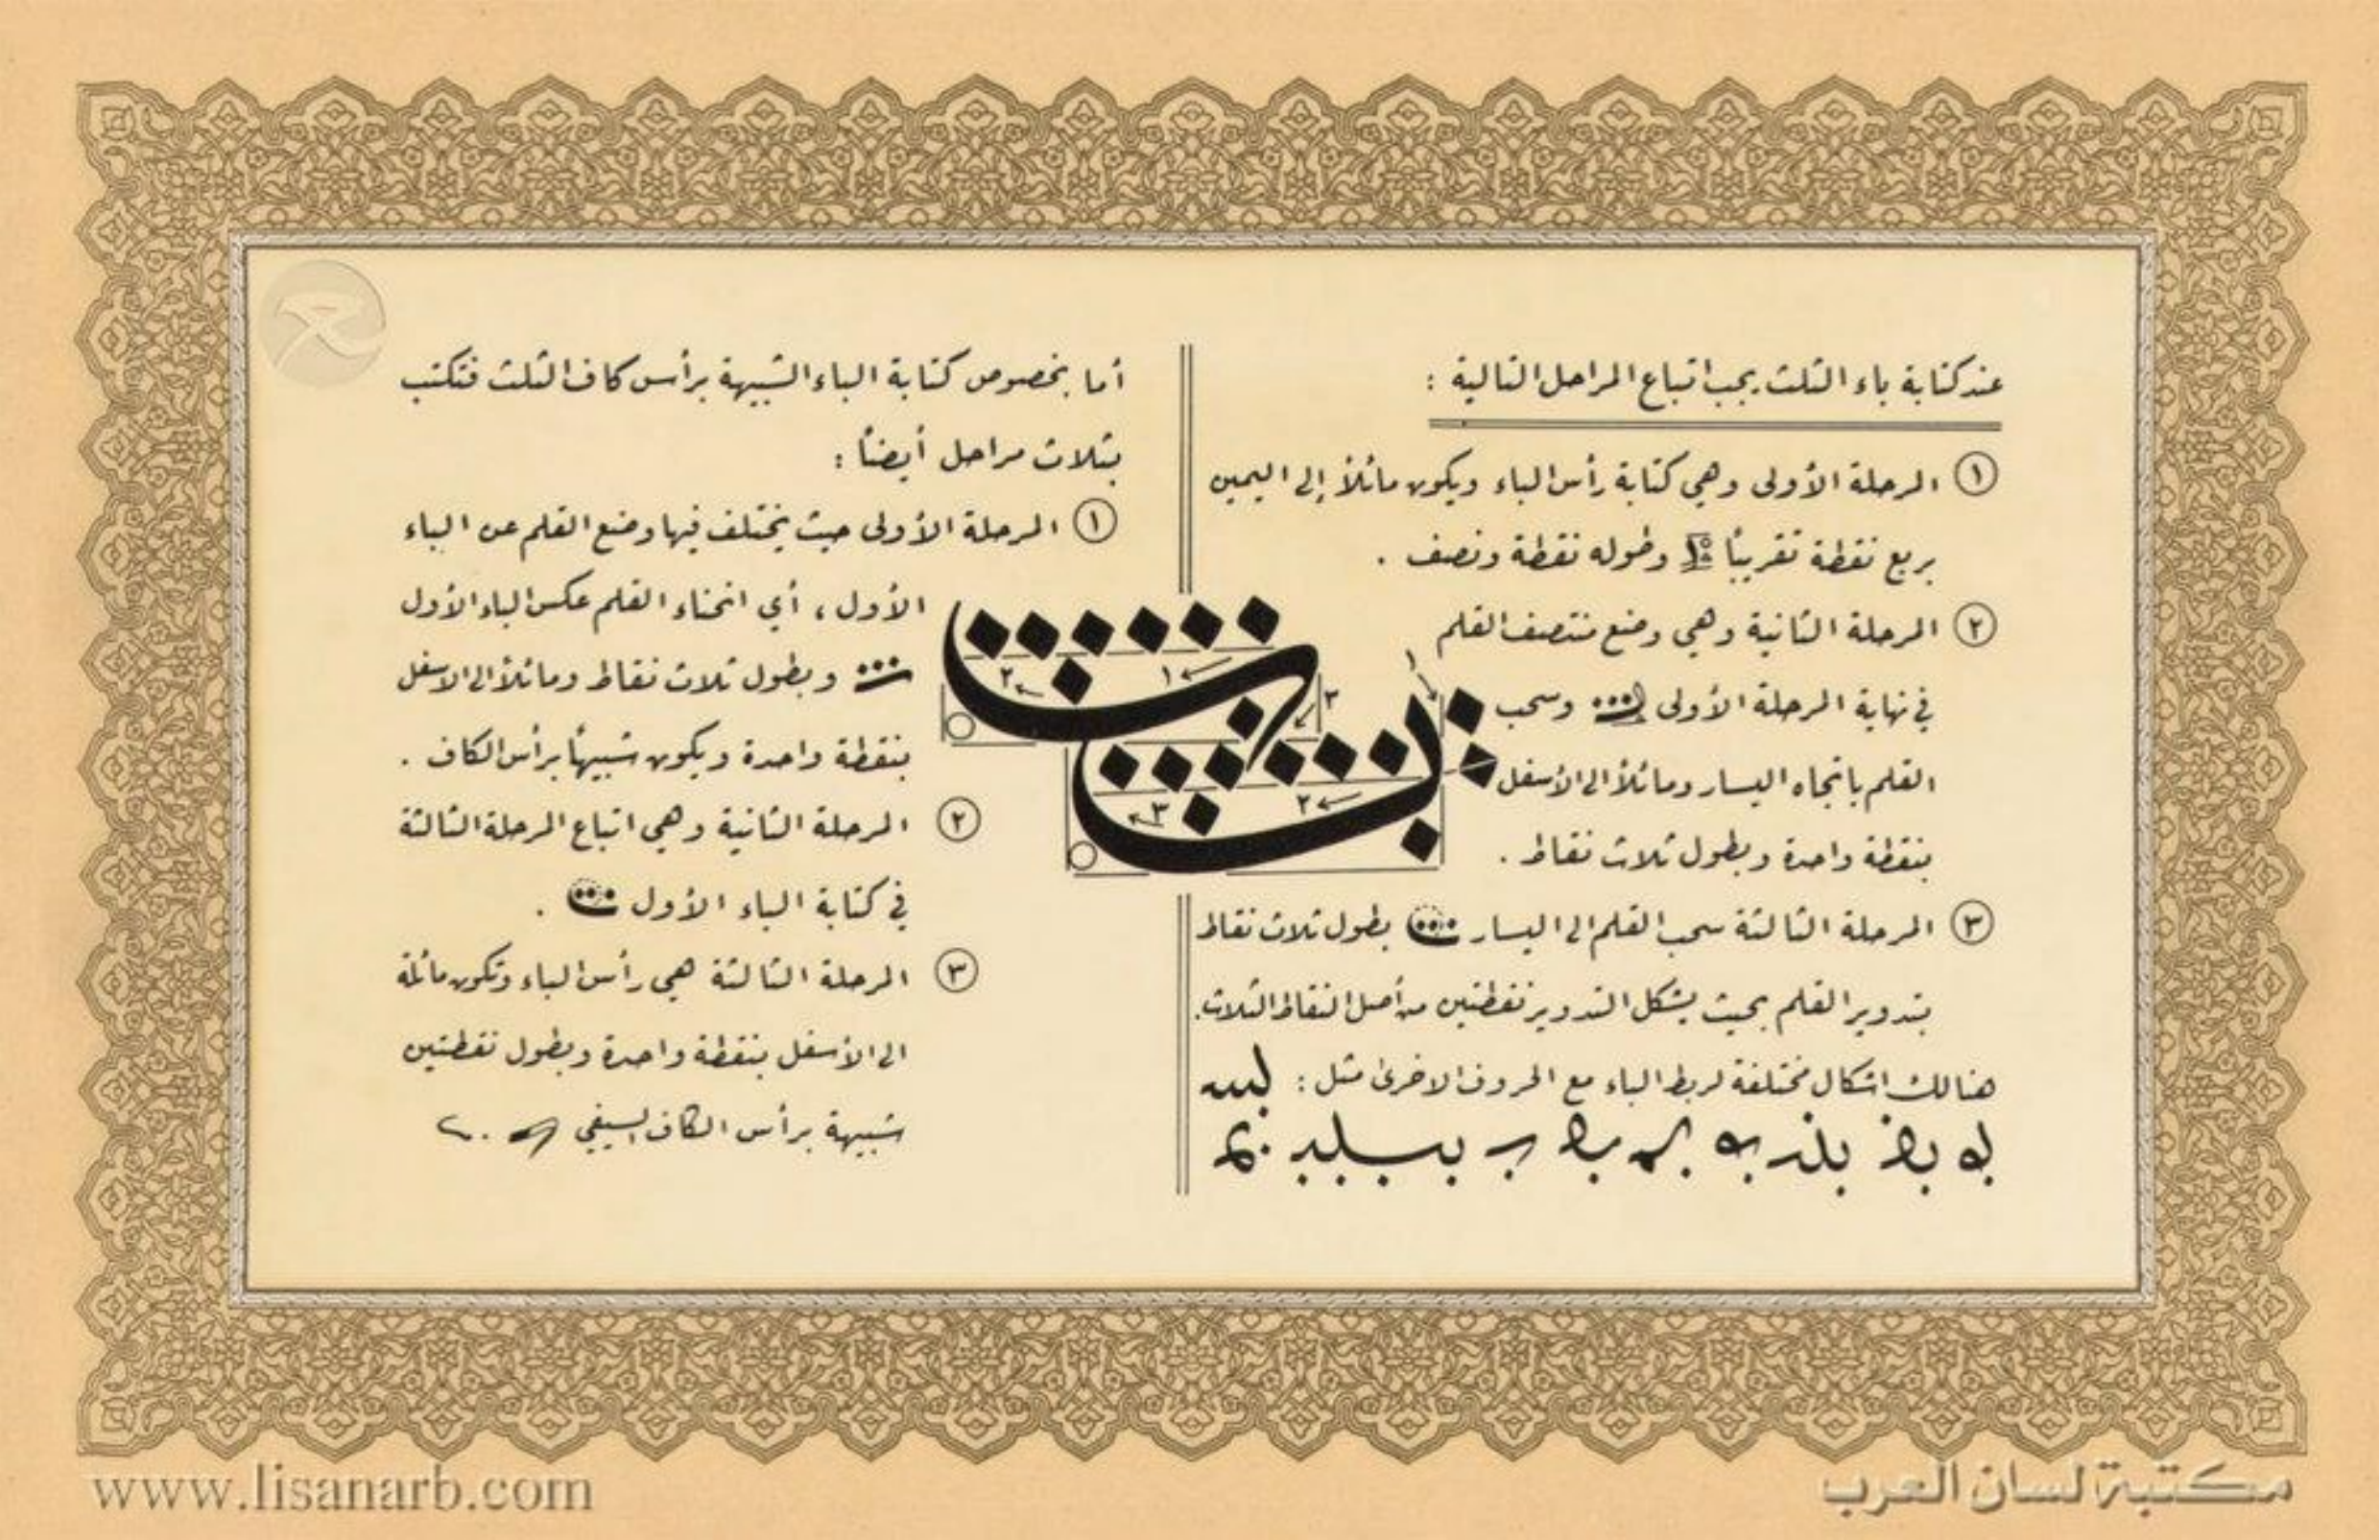 عند كتابة باء الثلث يجب اتباع المراحل التالية :
١ المرحلة الأولى وهي كتابة رأس الباء ويكون مائلاً إلى اليمين
بربع نقطة تقريباً وطوله نقطة ونصف .
٢ المرحلة الثانية وهي وضع منتصف القلم
في نهاية المرحلة الأولى وسحب
القلم باتجاه اليسار ومائلاً الى الأسفل
بنقطة واحدة وبطول ثلاث نقاط .
٣ المرحلة الثالثة سحب القلم الى اليسار بطول ثلاث نقاط
بتدوير القلم بحيث يشكل التدوير نقطتين من أصل النقاط الثلاث .
هنالك اشكال مختلفة لربط الباء مع الحروف الاخرى مثل :
أما بخصوص كتابة الباء الشبيهة برأس كاف الثلث فتكتب
بثلاث مراحل أيضاً :
١ المرحلة الأولى حيث يختلف فيها وضع القلم عن الباء
الأول ، أي انحناء القلم عكس الباء الأول
وبطول ثلاث نقاط ومائلاً الى الاسفل
بنقطة واحدة ويكون شبيهاً برأس الكاف .
٢ المرحلة الثانية وهي اتباع المرحلة الثالثة
في كتابة الباء الأول .
٣ المرحلة الثالثة هي رأس الباء وتكون مائلة
الى الأسفل بنقطة واحدة وبطول نقطتين
شبيهة برأس الكاف السيفي
١ ٢ ٣
١ ٢ ٣
www.lisanarb.com
مكتبة لسان العرب